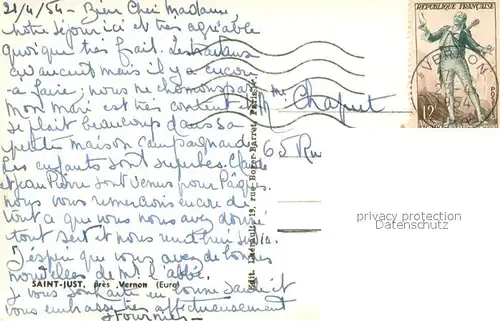 21/4/54 - Bien Chère Madame,
Notre séjour ici est très agréable
quoique très frais. les travaux
avancent mais il y a encore
à faire, nous ne chomons pas
Mon mari est très content
se plait beaucoup dans sa
petite maison Campagnarde
Les enfants sont superbes. Claude
et Jean Pierre sont venus pour Pâques
nous vous remercions encore de
tout ce que vous nous avez donné
tout sert et nous est utile ici.
J'espère que vous avez de bonnes
nouvelles de Mr l'abbé.
SAINT-JUST, près Vernon (Eure)
je vous souhaite en bonne santé et
vous embrasse très affectueusement
Fournier
Edit. Thébault, 19, rue Borer-Barret, Paris
RÉPUBLIQUE FRANÇAISE
12F
VERNON
1954
Mme Chaput
65 Ru
privacy protection
Datenschutz